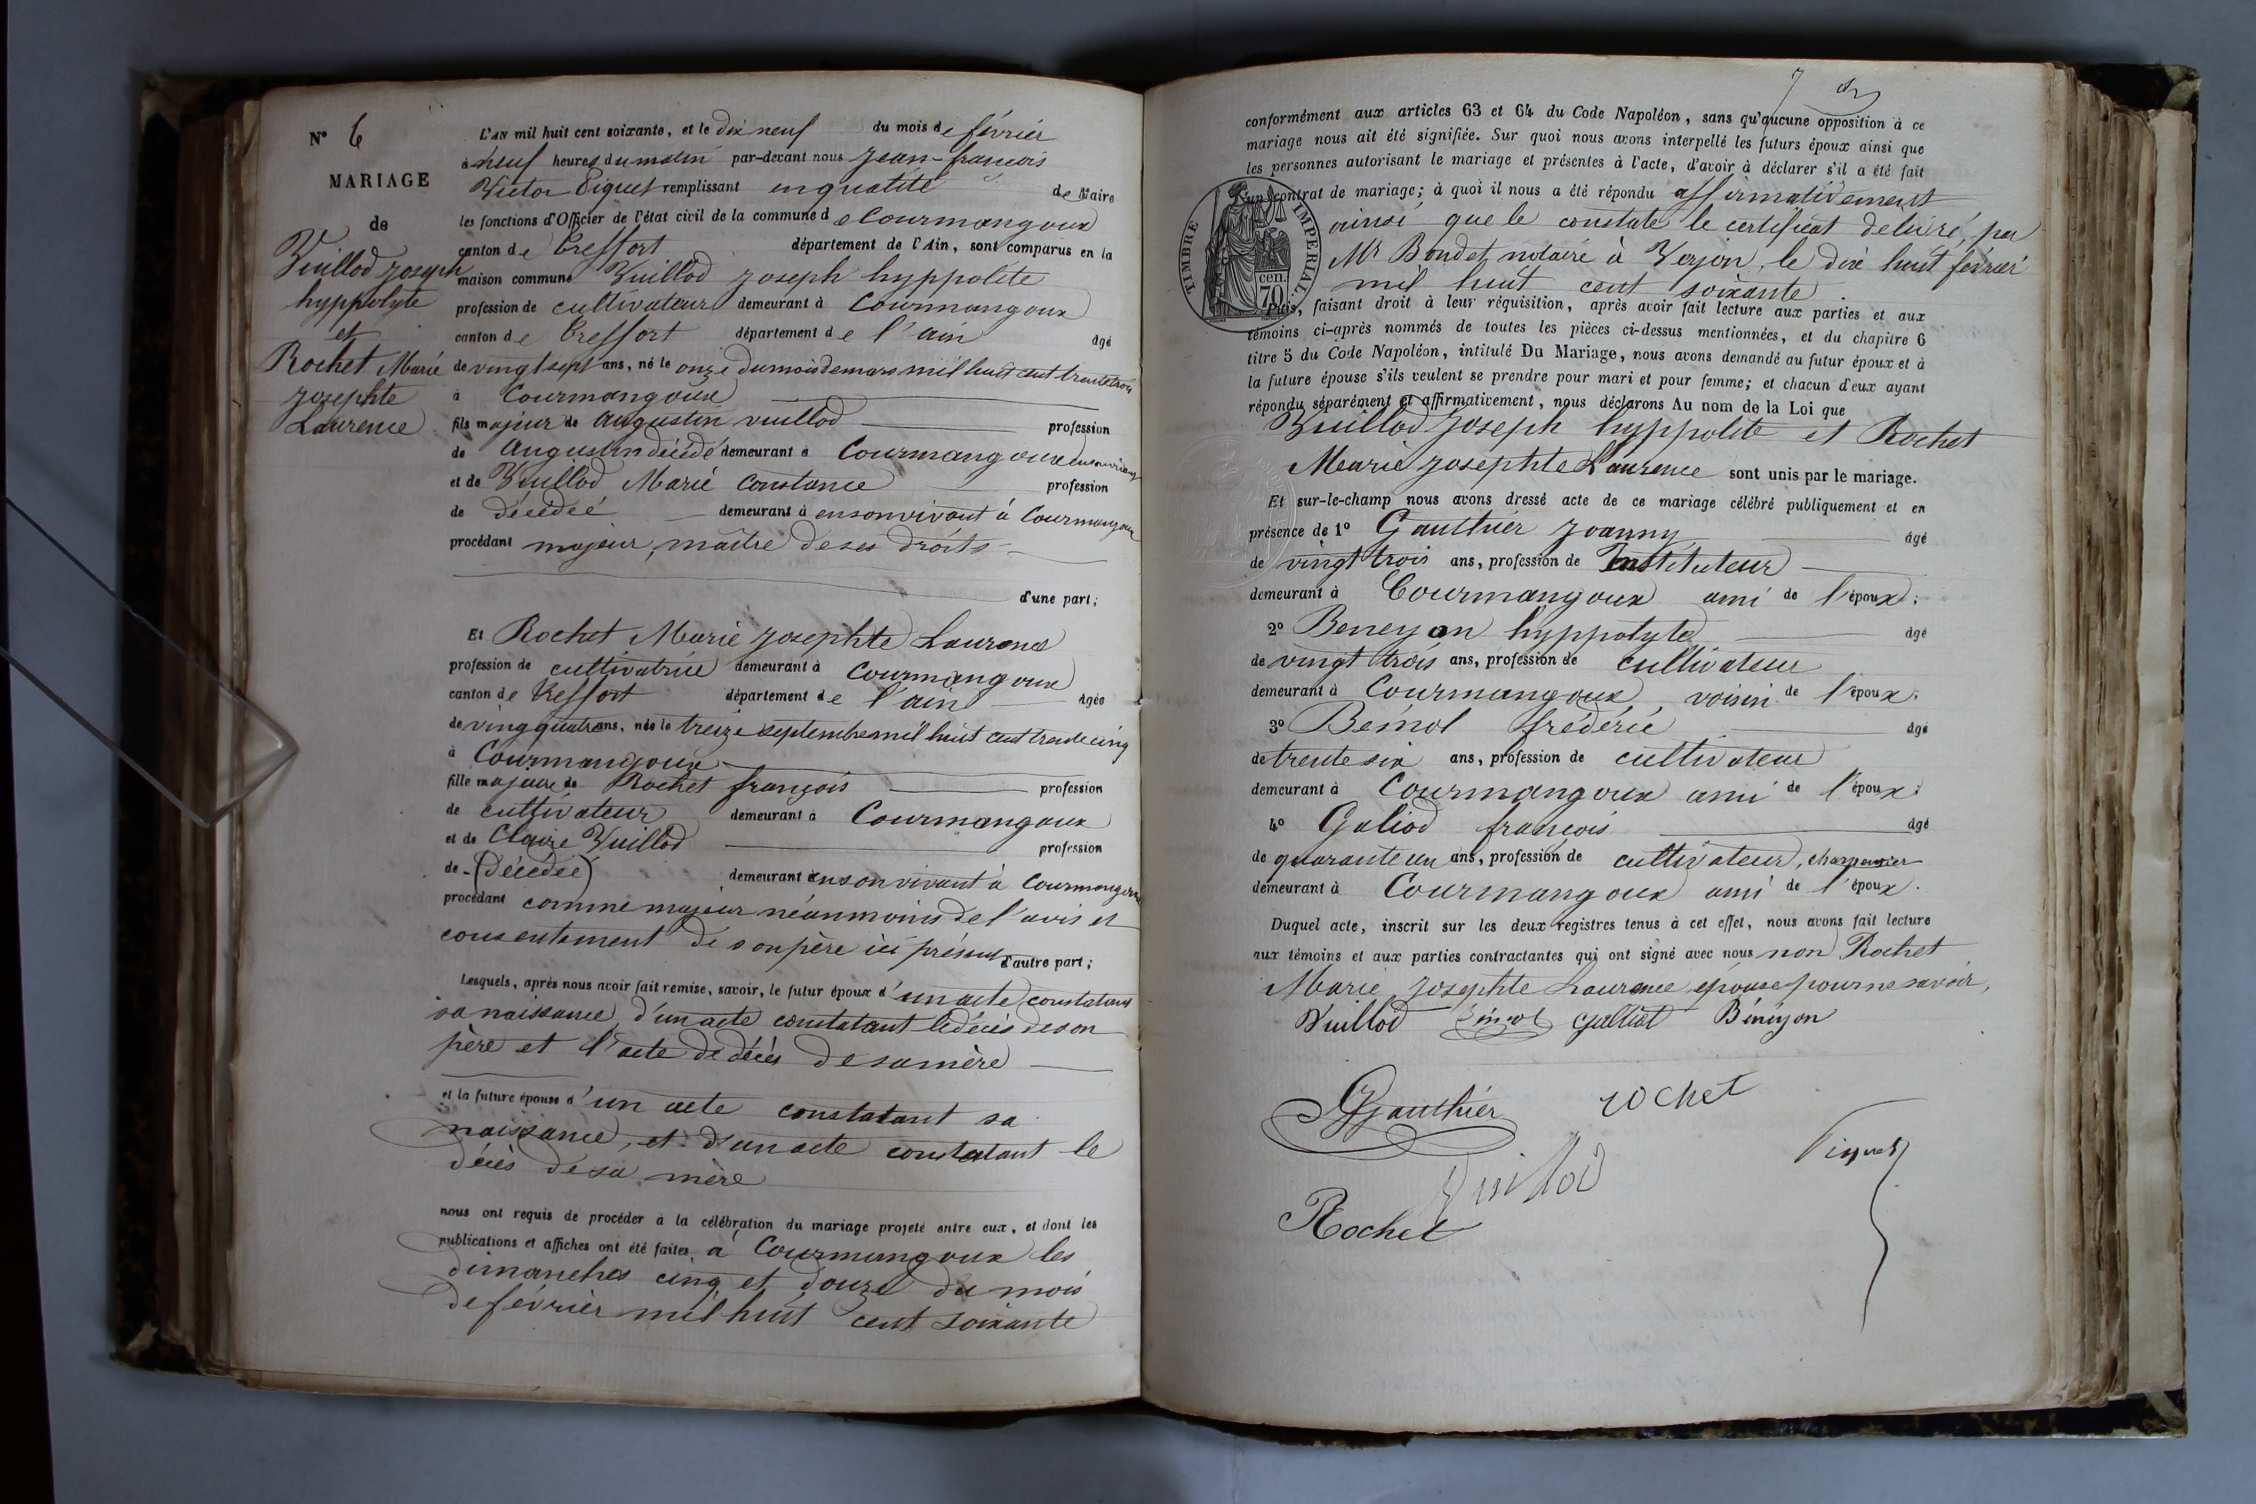 N° 6
MARIAGE
de
Vuillod Joseph
hyppolyte
et
Rochet Marie
Josephte
Laurence
L'AN mil huit cent soixante, et le dix neuf du mois de février
à neuf heures du matin par-devant nous Jean-françois
Victor Piquet remplissant en qualité de Maire
les fonctions d'Officier de l'état civil de la commune de Courmangoux
canton de Treffort département de l'Ain, sont comparus en la
maison commune Vuillod Joseph hyppolite
profession de cultivateur demeurant à Courmangoux
canton de Treffort département de l'ain âgé
de vingt sept ans, né le onze du mois de mars mil huit cent trente trois
à Courmangoux
fils majeur de augustin vuillod profession
de Augustin décédé demeurant à Courmangoux en son vivant
et de Vuillod Marie Constance profession
de décédée demeurant à en son vivant à Courmangoux
procédant majeur, maître de ses droits
d'une part;
Et Rochet Marie Josephte Laurence
profession de cultivatrice demeurant à Courmangoux
canton de Treffort département de l'ain âgée
de ving quatre ans, née le treize septembre mil huit cent trente cinq
à Courmangoux
fille majeure de Rochet françois profession
de cultivateur demeurant à Courmangoux
et de Claire Vuillod profession
de (décédée) demeurant en son vivant à Courmangoux
procédant comme majeur néanmoins de l'avis et
consentement de son père ici présent d'autre part;
Lesquels, après nous avoir fait remise, savoir, le futur époux d'un acte constatant
sa naissance, d'un acte constatant le décès de son
père et l'acte de décès de sa mère
et la future épouse d'un acte constatant sa
naissance, et d'un acte constatant le
décès de sa mère
nous ont requis de procéder à la célébration du mariage projeté entre eux, et dont les
publications et affiches ont été faites à Courmangoux les
dimanches cinq et douze du mois
de février mil huit cent soixante
7
conformément aux articles 63 et 64 du Code Napoléon, sans qu'aucune opposition à ce
mariage nous ait été signifiée. Sur quoi nous avons interpellé les futurs époux ainsi que
les personnes autorisant le mariage et présentes à l'acte, d'avoir à déclarer s'il a été fait
un contrat de mariage; à quoi il nous a été répondu affirmativement
ainsi que le constate le certificat délivré par
Mr Boudet notaire à Verjon, le dix huit février
mil huit cent soixante
TIMBRE IMPERIAL
cen.
70
Puis, faisant droit à leur réquisition, après avoir fait lecture aux parties et aux
témoins ci-après nommés de toutes les pièces ci-dessus mentionnées, et du chapitre 6
titre 5 du Code Napoléon, intitulé Du Mariage, nous avons demandé au futur époux et à
la future épouse s'ils veulent se prendre pour mari et pour femme; et chacun d'eux ayant
répondu séparément et affirmativement, nous déclarons Au nom de la Loi que
Vuillod Joseph hyppolite et Rochet
Marie Josephte Laurence sont unis par le mariage.
Et sur-le-champ nous avons dressé acte de ce mariage célébré publiquement et en
présence de 1° Gauthier Joanny âgé
de vingt trois ans, profession de Instituteur
demeurant à Courmangoux ami de l'époux;
2° Beneyon hyppolyte âgé
de vingt trois ans, profession de cultivateur
demeurant à Courmangoux voisin de l'époux;
3° Beinol frédéric âgé
de trente six ans, profession de cultivateur
demeurant à Courmangoux ami de l'époux;
4° Galiod françois âgé
de quarante un ans, profession de cultivateur, charpentier
demeurant à Courmangoux ami de l'époux.
Duquel acte, inscrit sur les deux registres tenus à cet effet, nous avons fait lecture
aux témoins et aux parties contractantes qui ont signé avec nous non Rochet
Marie Josephte Laurence épouse pour ne savoir,
Vuillod galliot Bénéyon
Gauthier rochet
Piquet
Vuillod
Rochet